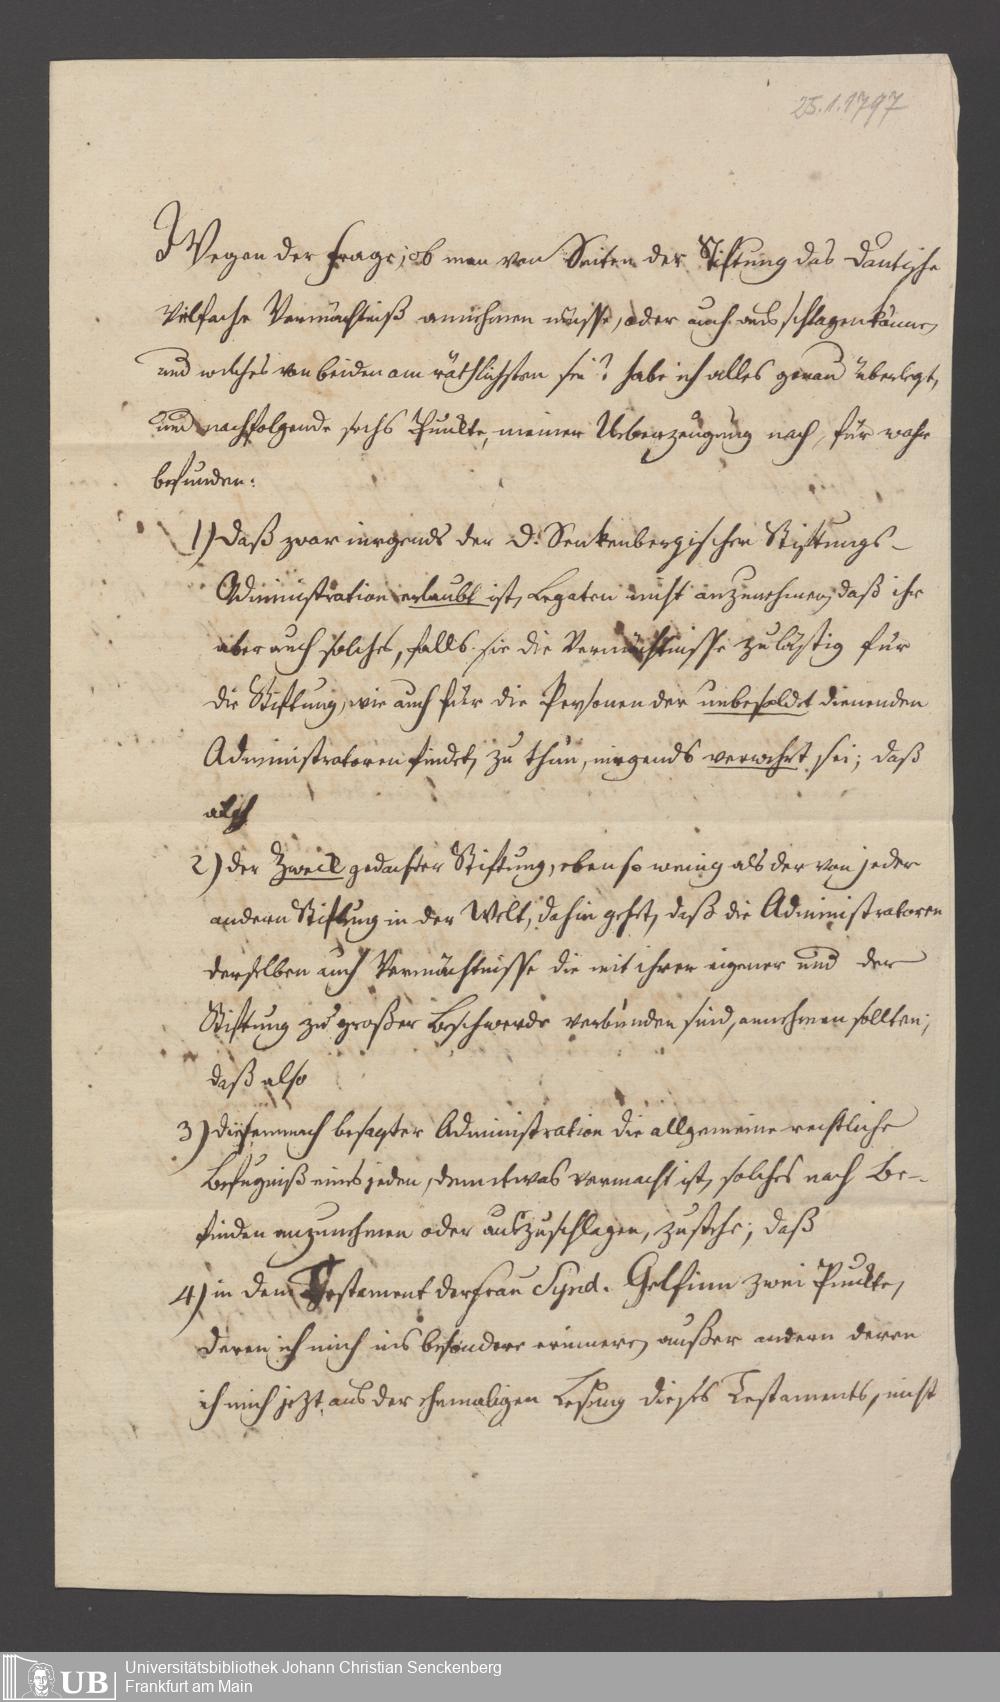 25.1.1797
Wegen der Frage, ob man von Seiten der Stiftung das
vielfache Vermächtniß annehmen müsse, oder auch ausschlagen könne,
und welches von beiden am räthlichsten sei? habe ich alles genau überlegt,
und nachfolgende sechs Punkte, meiner Ueberzeugung nach, für wahr
befunden:
1) Daß zwar nirgends der D. Senkenbergischen Stiftungs-
Administration erlaubt ist, Legaten nicht anzunehmen, daß ihr
aber auch solches, falls sie die Vermächtnisse zu lästig für
die Stiftung, wie auch für die Personen der unbesoldet dienenden
Administratoren findet, zu thun, nirgends verwehrt sei; daß
auch
2) der Zweck gedachter Stiftung, eben so wenig als der von jeder
andern Stiftung in der Welt, dahin gehet, daß die Administratoren
derselben auch Vermächtnisse die mit ihrer eigener und der
Stiftung zu großer Beschwerde verbunden sind, annehmen sollten;
daß also
3) diesemnach besagter Administration die allgemeine rechtliche
Befugniß eines jeden, dem etwas vermacht ist, solches nach Be-
finden anzunehmen oder auszuschlagen, zustehe; daß
4) in dem Testament der Frau Synd. zwei Punkte,
deren ich mich ins besondere erinnere, außer andern deren
ich mich jezt aus der ehemaligen Lesung dieses Testaments, nicht
UB
Universitätsbibliothek Johann Christian Senckenberg
Frankfurt am Main